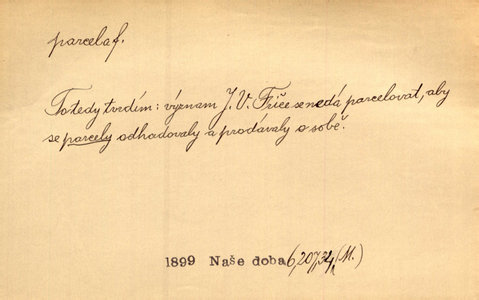 parcela f.
To tedy tvrdím: význam J. V. Friče se nedá parcelovat, aby
se parcely odhadovaly a prodávaly o sobě.
1899 Naše doba 6, 207, (M.)